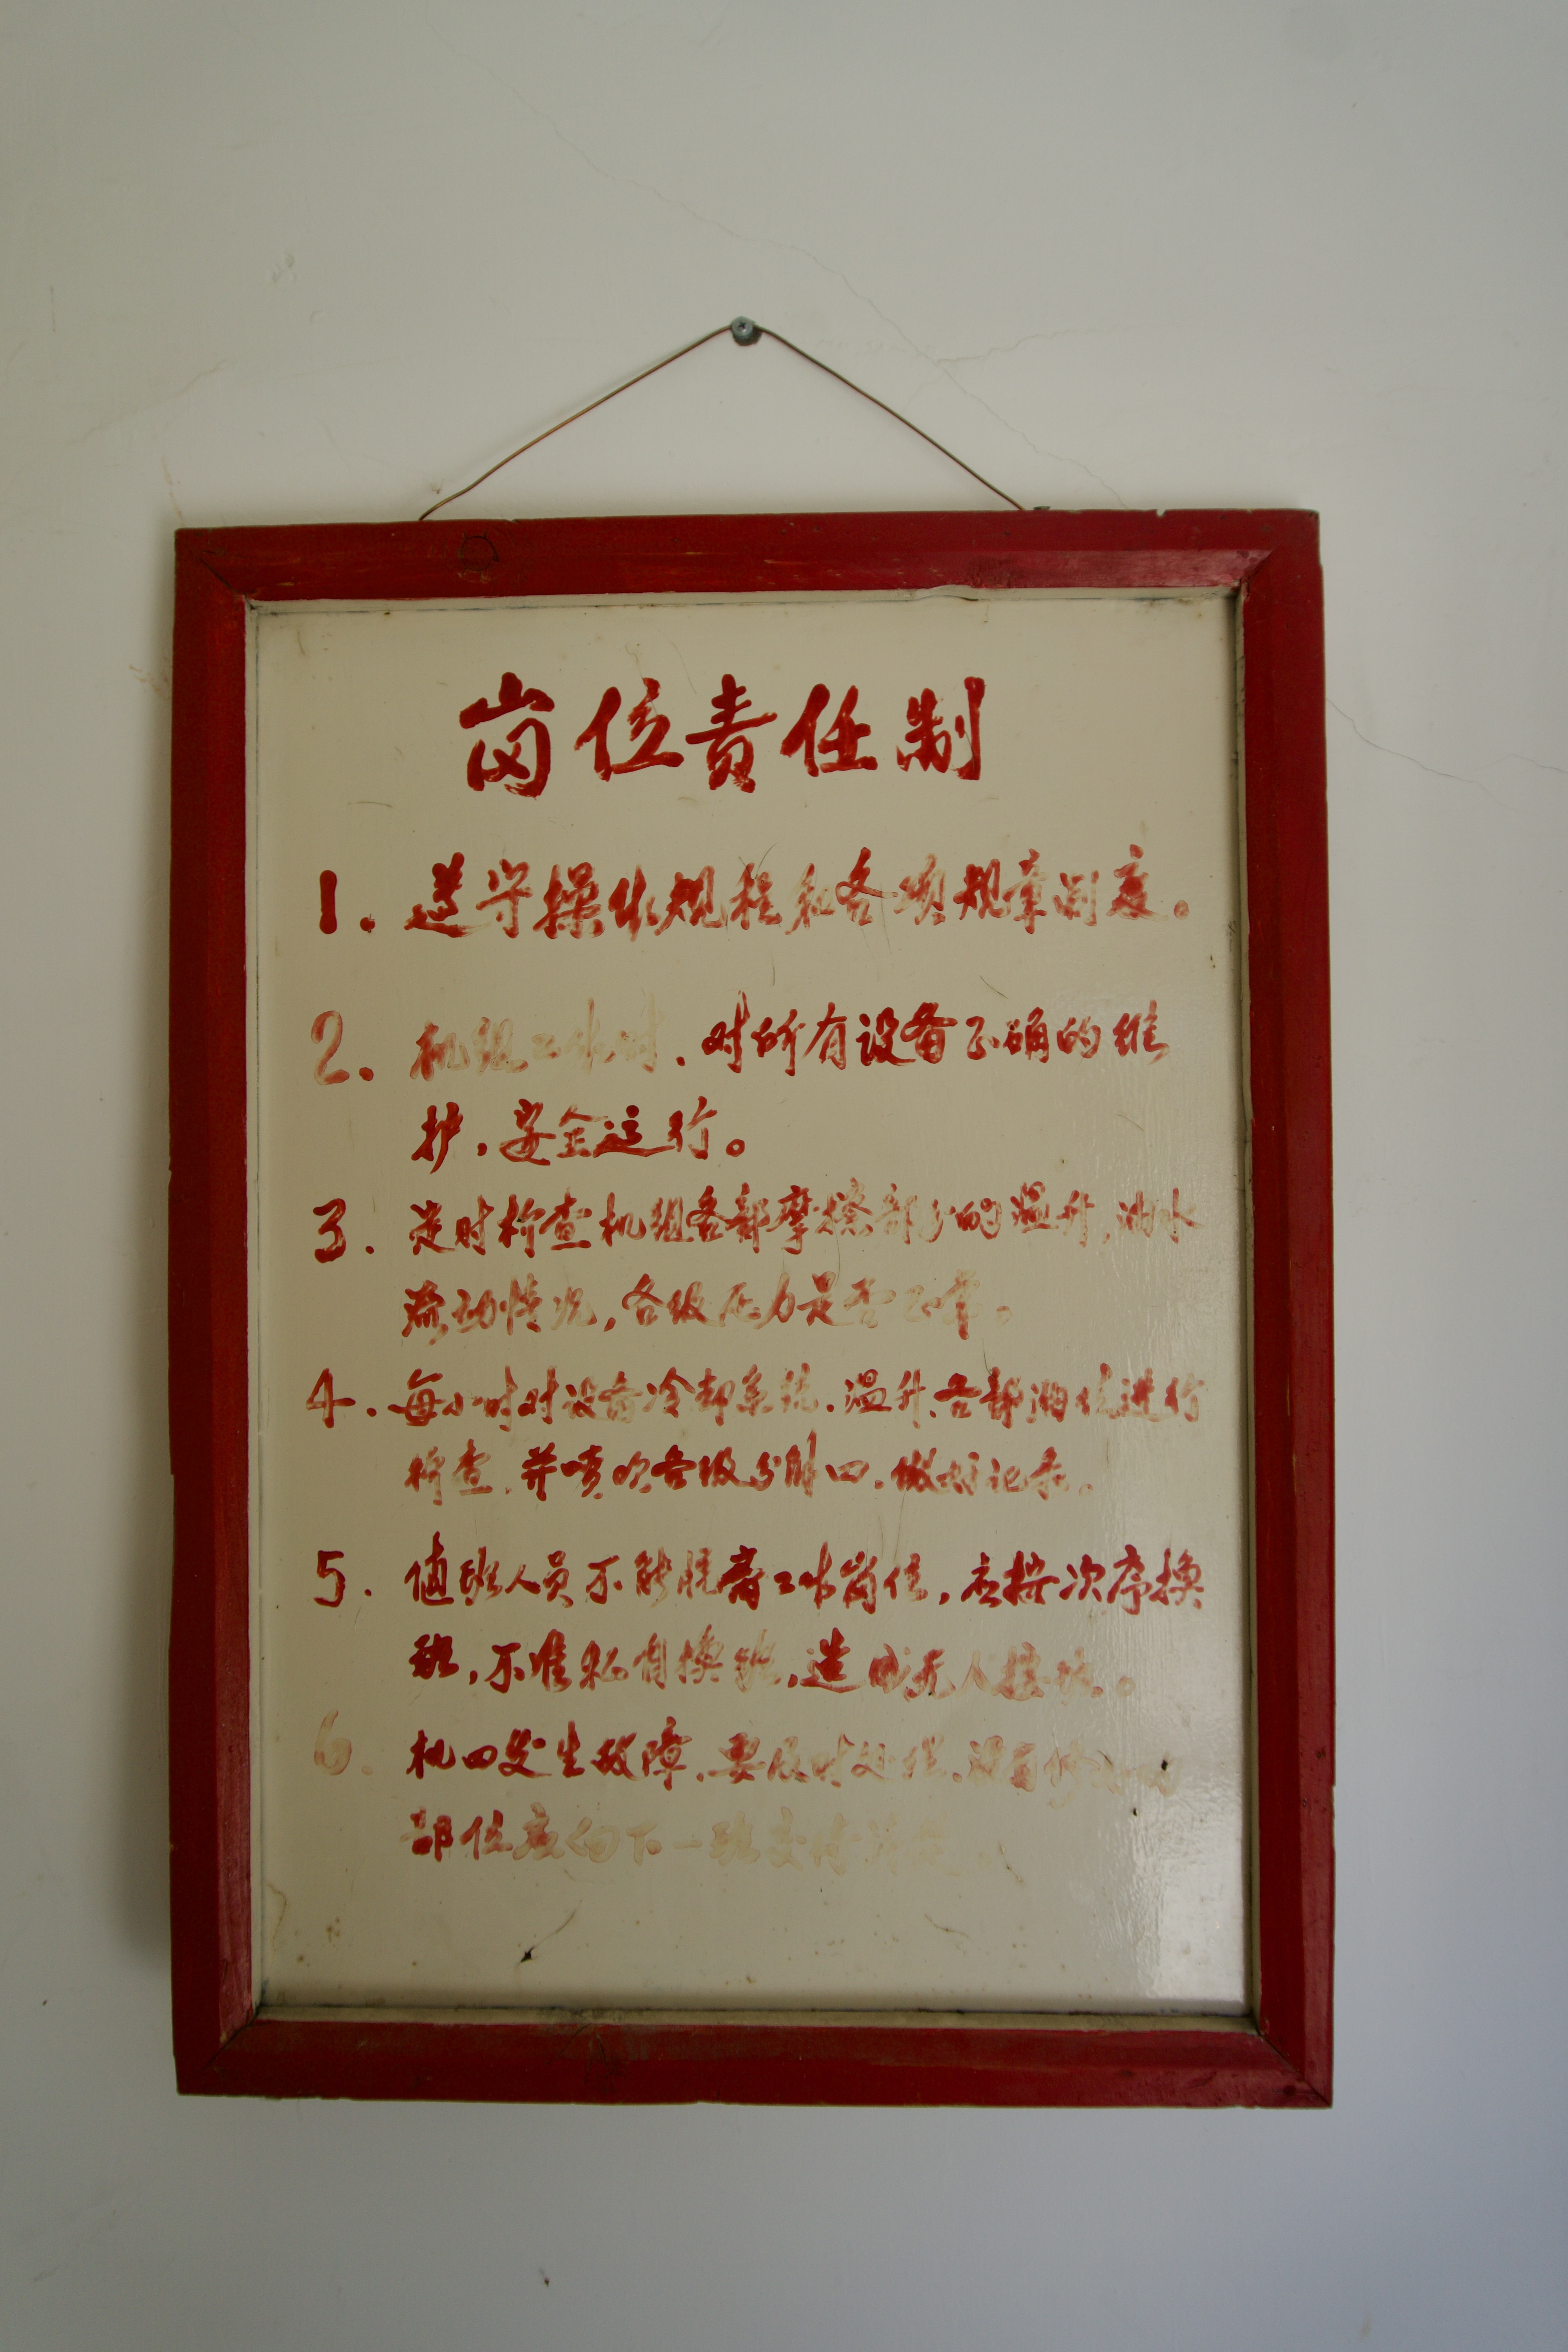 岗位责任制
1. 遵守操作规程和各项规章制度。
2. 机组工作时、对所有设备正确的维
护、安全运行。
3. 定时检查机组各部摩擦部分的温升,油水
流动情况,各级压力是否正常。
4. 每小时对设备冷却系统、温升、各部油位进行
检查、并喷吹各级分解口、做好记录。
5. 值班人员不能脱离工作岗位,应按次序换
班,不准私自换班,造成无人接班。
6. 机四发生故障、要及时处理、没有修
部位应向下一班交待